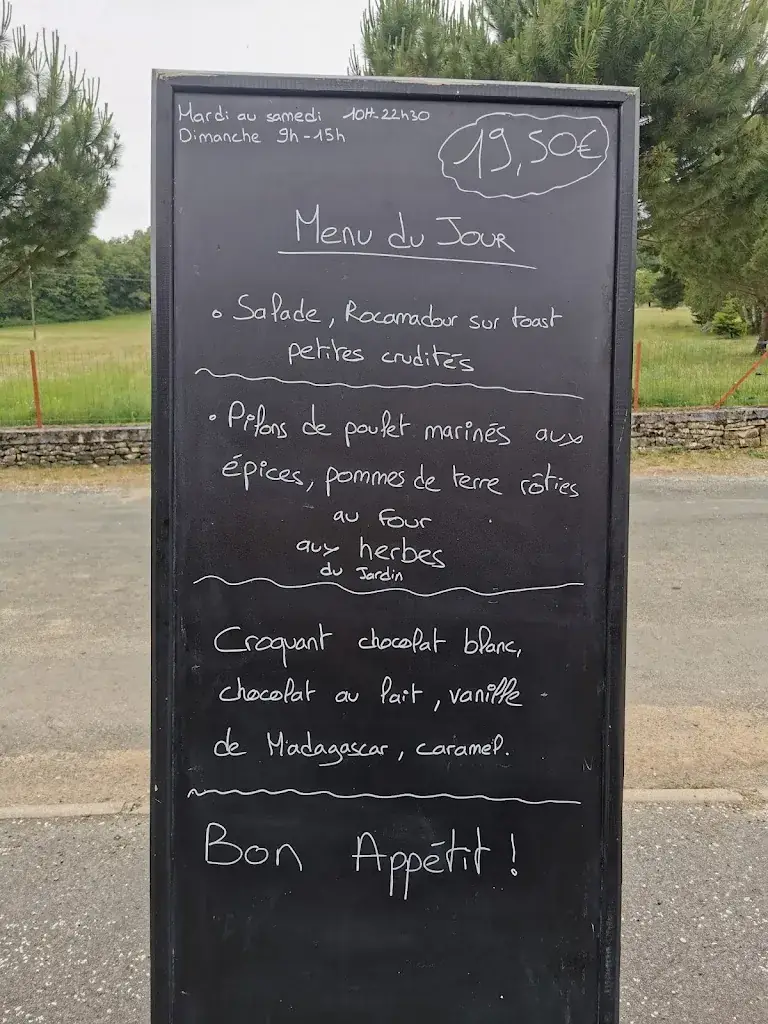 Mardi au samedi 10H-22H30
Dimanche 9h-15h
19,50€
Menu du Jour
Salade, Rocamadour sur toast
petites crudités
Pilons de poulet marinés aux
épices, pommes de terre rôties
au four
aux herbes
du Jardin
Croquant chocolat blanc,
chocolat au lait, vanille
de Madagascar, caramel.
Bon Appétit !